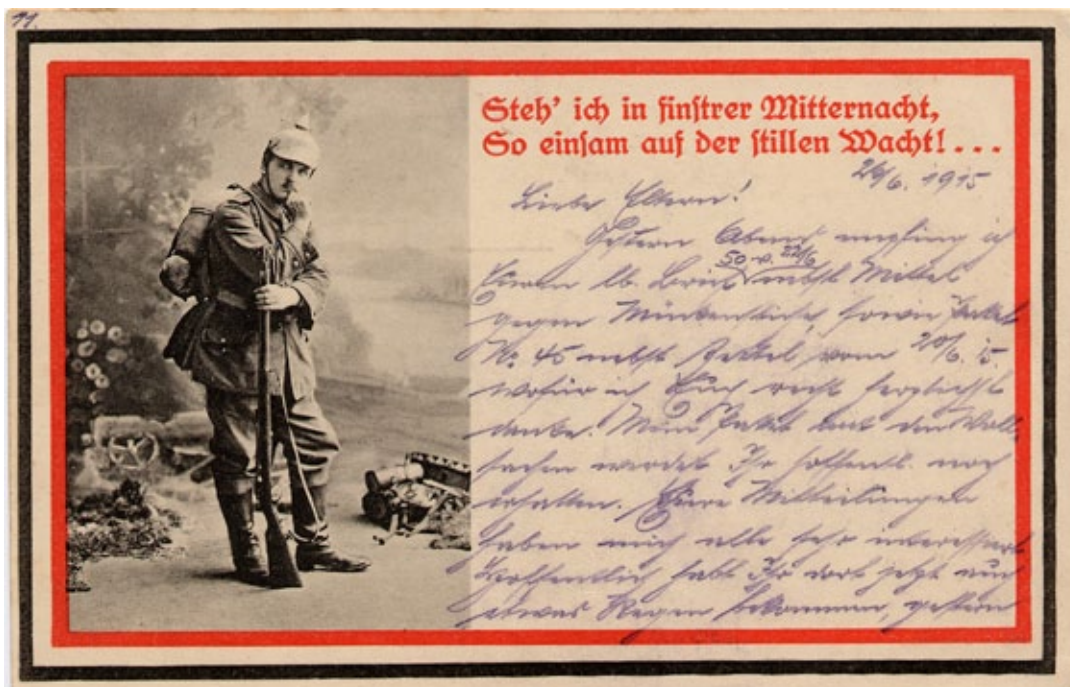 11.
Steh' ich in finstrer Mitternacht,
So einsam auf der stillen Wacht!...
26/6. 1915
Liebe Eltern!
Gestern Abend empfing ich
50 v. 22/6
Euren lb. Brief nebst Mittel
gegen Mückenstiche, sowie Paket
No. 45 nebst Zettel vom 20/6. 15.
wofür ich Euch recht herzlichst
danke. Mein Paket mit den Woll-
sachen werdet Ihr hoffentl. noch
erhalten. Eure Mitteilungen
haben mich alle sehr interessiert
Hoffentlich habt Ihr dort jetzt auch
etwas Regen bekommen, gestern